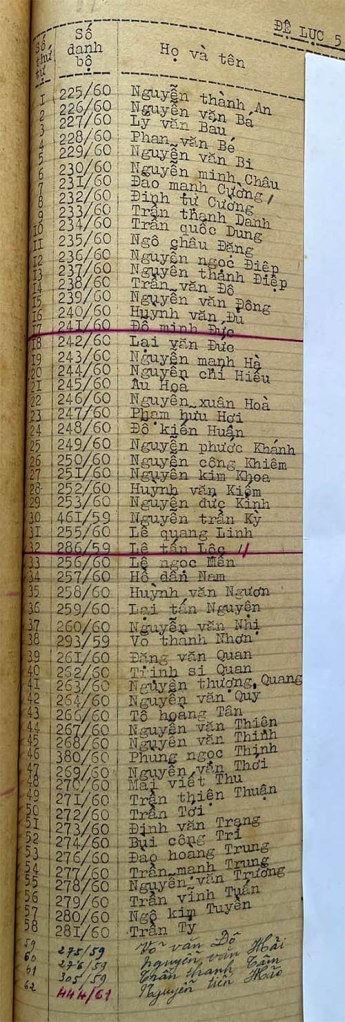 ĐỆ LỤC 5
Số thứ tự Số danh bộ Họ và tên
1 225/60 Nguyễn thành An
2 226/60 Nguyễn văn Ba
3 227/60 Lý văn Bau
4 228/60 Phan văn Bé
5 229/60 Nguyễn văn Bi
6 230/60 Nguyễn minh Châu
7 231/60 Đào mạnh Cường
8 232/60 Đinh tư Cương
9 233/60 Trần thanh Danh
10 234/60 Trần quốc Dung
11 235/60 Ngô châu Đăng
12 236/60 Nguyễn ngọc Điệp
13 237/60 Nguyễn thành Điệp
14 238/60 Trần văn Đô
15 239/60 Nguyễn văn Đông
16 240/60 Huỳnh văn Đủ
17 241/60 Đỗ minh Đức
18 242/60 Lai văn Đức
19 243/60 Nguyễn mạnh Hà
20 244/60 Nguyễn chí Hiếu
21 245/60 Âu Hoa
22 246/60 Nguyễn xuân Hoà
23 247/60 Phạm hưu Hợi
24 248/60 Đỗ kiến Huấn
25 249/60 Nguyễn phước Khánh
26 250/60 Nguyễn công Khiêm
27 251/60 Nguyễn kim Khoa
28 252/60 Huỳnh văn Kiệm
29 253/60 Nguyễn đức Kính
30 461/59 Nguyễn trấn Kỳ
31 255/60 Lê quang Linh
32 286/59 Lê tấn Lộc
33 256/60 Lê ngọc Mến
34 257/60 Hồ dần Nam
35 258/60 Huỳnh văn Ngươn
36 259/60 Lại tấn Nguyện
37 260/60 Nguyễn văn Nhị
38 293/59 Võ thanh Nhơn
39 261/60 Đặng văn Quan
40 262/60 Trịnh si Quan
41 263/60 Nguyễn thượng Quang
42 264/60 Nguyễn văn Quý
43 266/60 Tô hoang Tân
44 267/60 Nguyễn văn Thiên
45 268/60 Nguyễn văn Thinh
46 380/60 Phung ngọc Thịnh
47 269/60 Nguyễn văn Thới
48 270/60 Mai viết Thu
49 271/60 Trần thiện Thuận
50 272/60 Trần Tới
51 273/60 Đinh văn Trang
52 274/60 Bui công Trí
53 276/60 Đao hoang Trung
54 277/60 Trần mạnh Trung
55 278/60 Nguyễn văn Trường
56 279/60 Trần vĩnh Tuấn
57 280/60 Ngô kim Tuyến
58 281/60 Trần Ty
59 275/59 Võ văn Đô
60 276/59 Nguyễn văn Hải
61 305/59 Trần thanh Tâm
62 444/61 Nguyễn tiến Hảo